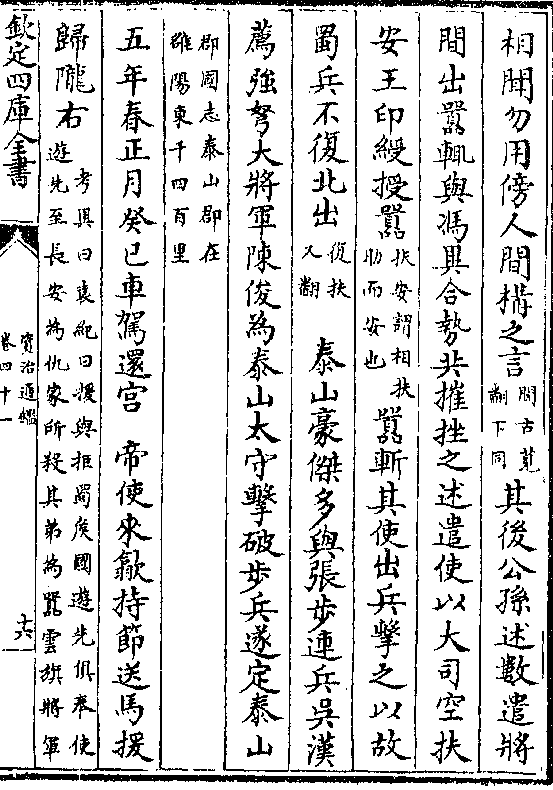 相聞勿用傍人間構之言間古莧翻下同其後公孫述數遣將
間出囂輒與馮異合勢共摧挫之述遣使以大司空扶
安王印綬授囂扶安謂相扶助而安也囂斬其使出兵擊之以故
蜀兵不復北出復扶又翻 泰山豪傑多與張步連兵吳漢
薦強弩大將軍陳俊為泰山太守擊破步兵遂定泰山
郡國志泰山郡在雒陽東千四百里
五年春正月癸巳車駕還宮 帝使來歙持節送馬援
歸隴右考異曰袁紀曰援與拒蜀侯國遊先俱奉使遊先至長安為仇家所殺其弟為囂雲旗將軍
欽定四庫全書
資治通鑑
卷四十一
十六